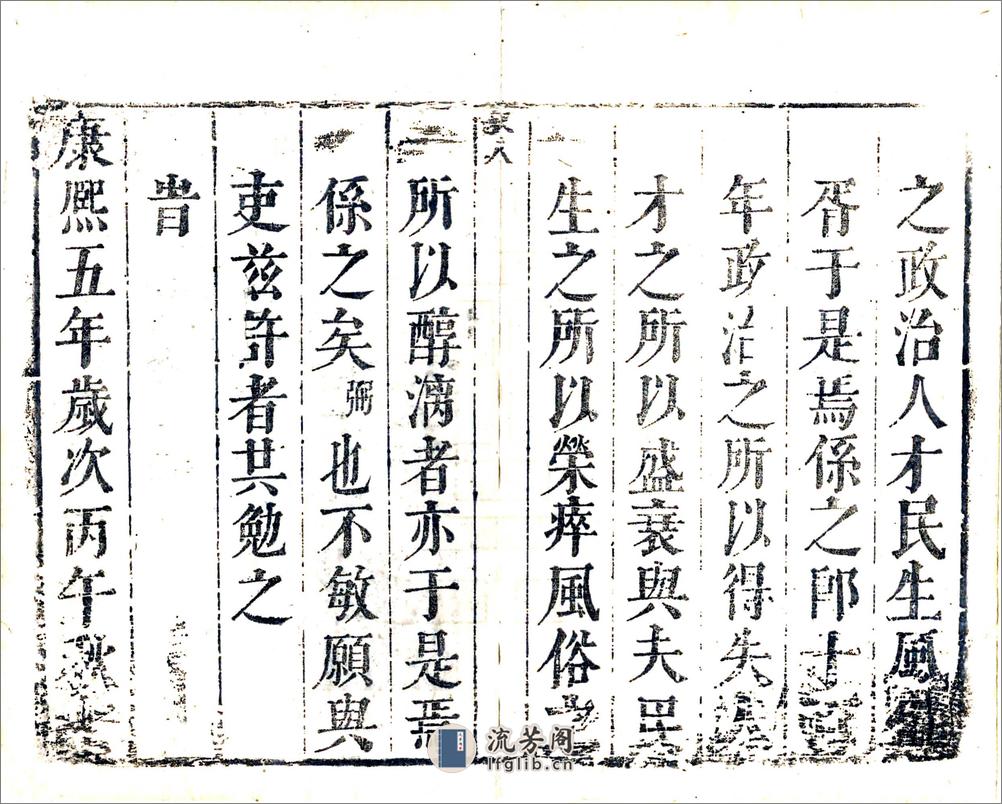 之政治人才民生風俗
胥于是焉係之卽十
年政治之所以得失人
才之所以盛衰與夫民
生之所以榮瘁風俗之
所以醇漓者亦于是焉
係之矣弼也不敏願與
吏茲許者共勉之
旹
康熙五年歲次丙午秋
流芳阁
lfglib.cn